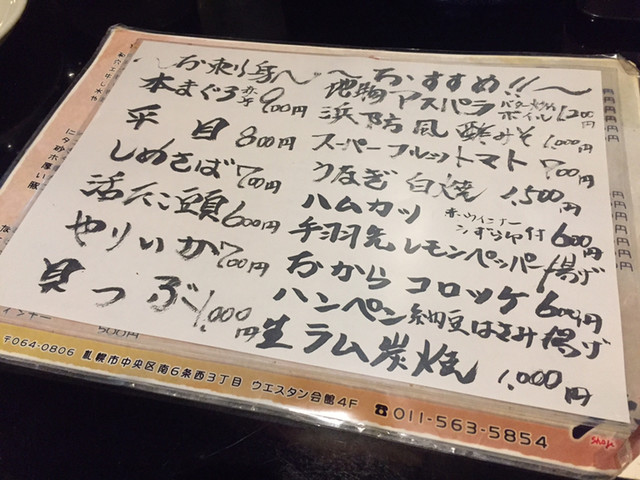 お刺身
本まぐろ赤身 900円
平目 800円
しめさば 700円
活たこ頭 600円
やりいか 700円
真つぶ 1,000円
〜おすすめ!!〜
地物アスパラ バター炒め ボイル 1200円
浜防風 酢みそ 1,000円
スーパーフルーツトマト 700円
うなぎ白焼 1,500円
ハムカツ 赤いウインナー うずら卵付 600円
手羽先レモンペッパー揚げ
おからコロッケ 600円
ハンペン納豆はさみ揚げ
生ラム炭焼 1,000円
500円
〒064-0806 札幌市中央区南6条西3丁目 ウエスタン会館4F ☎011-563-5854